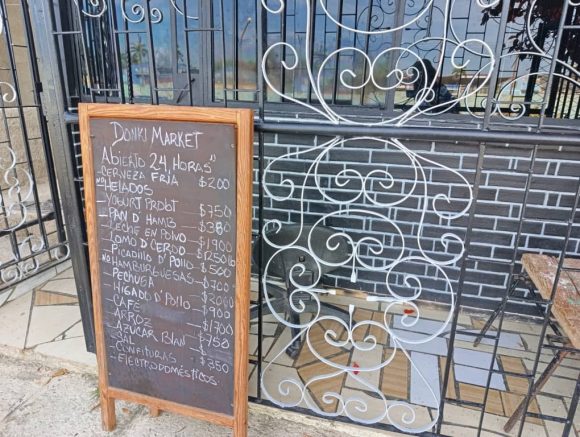 DONKI MARKET
ABIERTO 24 HORAS
CERVEZA FRIA $200
NO HELADOS
YOGURT PRDBT $750
PAN D' HAMB $380
LECHE EN POLVO $1900
LOMO D' CERDO $1250 lb
PICADILLO D' POLLO $500
NO HAMBURGUESAS $700
PECHUGA $2000
HIGADO D' POLLO $900
CAFÉ $1700
ARROZ
AZUCAR BLAN $750
SAL
CONFITURAS $350
ELECTRODOMÉSTICOS